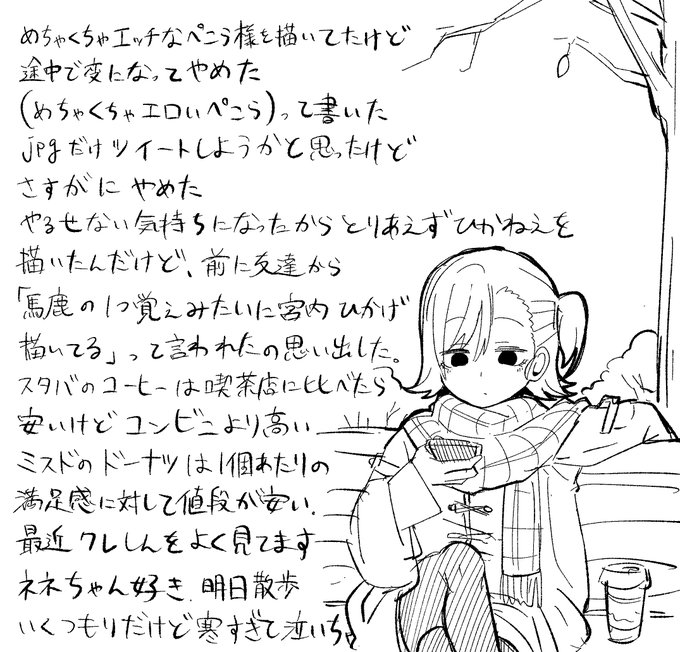 めちゃくちゃエッチなぺこら様を描いてたけど
途中で変になってやめた
(めちゃくちゃエロいぺこら)って書いた
jpgだけツイートしようかと思ったけど
さすがにやめた
やるせない気持ちになったからとりあえずひかねえを
描いたんだけど、前に友達から
「馬鹿の1つ覚えみたいに宮内ひかげ
描いてる」って言われたの思い出した。
スタバのコーヒーは喫茶店に比べたら
安いけどコンビニより高い
ミスドのドーナツは1個あたりの
満足感に対して値段が安い.
最近クレしんをよく見てます
ネネちゃん好き.明日散歩
いくつもりだけど寒すぎて泣いちゃ